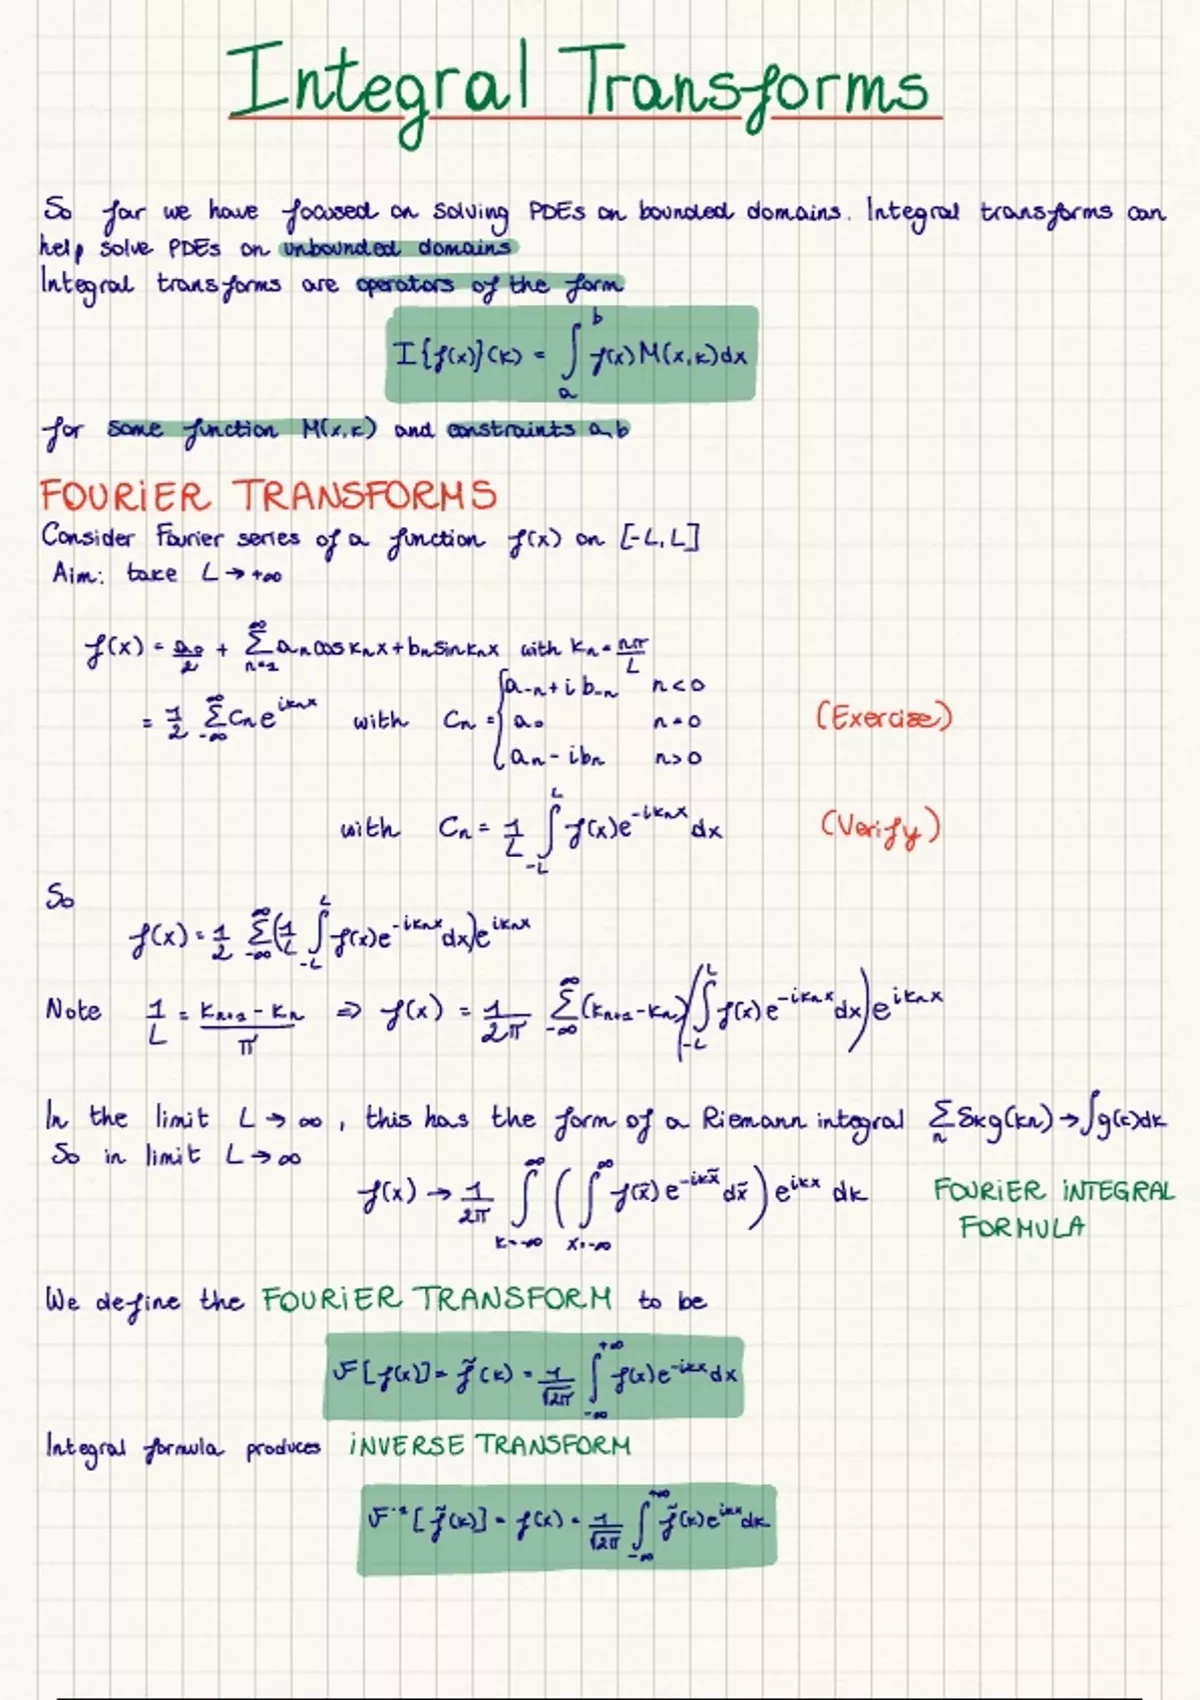 Integral Transforms
So far we have focused on solving PDEs on bounded domains. Integral transforms can
help solve PDEs on unbounded domains
Integral transforms are operators of the form
I{f(x)}(k) = ∫_a^b f(x)M(x,k)dx
for some function M(x,k) and constraints a,b
FOURiER TRANSFORMS
Consider Fourier series of a function f(x) on [-L,L]
Aim: take L → +∞
f(x) = a₀/2 + Σ_{n=1}^∞ aₙcos kₙx + bₙsin kₙx with kₙ = nπ/L
= 1/2 Σ_{-∞}^∞ Cₙe^{ikₙx} with Cₙ = { a₋ₙ + i b₋ₙ n<0
a₀ n=0 (Exercise)
aₙ - ibₙ n>0
with Cₙ = 1/L ∫_{-L}^L f(x)e^{-ikₙx}dx (Verify)
So
f(x) = 1/2 Σ_{-∞}^∞ (1/L ∫_{-L}^L f(x)e^{-ikₙx}dx)e^{ikₙx}
Note 1/L = (kₙ₊₁ - kₙ)/π ⇒ f(x) = 1/2π Σ_{-∞}^∞ (kₙ₊₁ - kₙ)(∫_{-L}^L f(x)e^{-ikₙx}dx)e^{ikₙx}
In the limit L → ∞, this has the form of a Riemann integral Σ_n δk g(kₙ) → ∫g(k)dk
So in limit L → ∞
f(x) → 1/2π ∫_{k=-∞}^∞ (∫_{x=-∞}^∞ f(x̃)e^{-ikx̃}dx̃)e^{ikx} dk FOURiER iNTEGRAL
FORMULA
We define the FOURiER TRANSFORM to be
F[f(x)] = f̃(k) = 1/√2π ∫_{-∞}^{+∞} f(x)e^{-ikx}dx
Integral formula produces iNVERSE TRANSFORM
F⁻¹[f̃(k)] = f(x) = 1/√2π ∫_{-∞}^{+∞} f̃(k)e^{ikx}dk